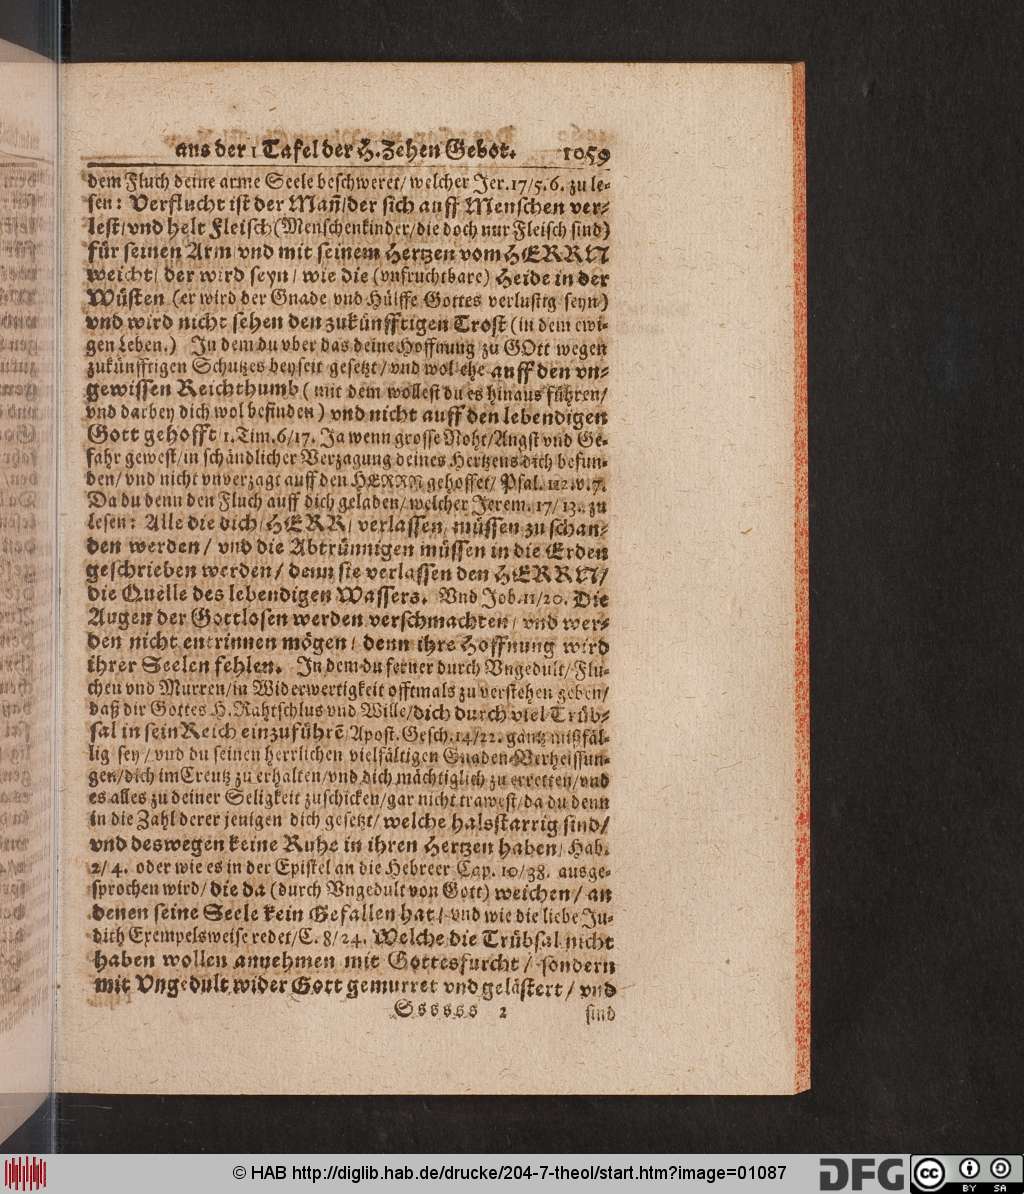 aus der 1 Tafel der H. Zehen Gebot. 1059
dem Fluch deine arme Seele beschweret/ welcher Jer. 17/5. 6. zu le-
sen: Verflucht ist der Mañ/der sich auff Menschen ver-
lest/vnd helt Fleisch (Menschenkinder/die doch nur Fleisch sind)
für seinen Arm/ vnd mit seinem Hertzen vom HERRN
weicht/ der wird seyn/ wie die (vnfruchtbare) Heide in der
Wüsten (er wird der Gnade vnd Hülffe Gottes verlustig seyn)
vnd wird nicht sehen den zukünfftigen Trost (in dem ewi-
gen Leben.) In dem du vber das deine Hoffnung zu GOtt wegen
zukünfftigen Schutzes beyseit gesetzt/ vnd wol ehe auff den vn-
gewissen Reichthumb (mit dem wollest du es hinaus führen/
vnd darbey dich wol befinden) vnd nicht auff den lebendigen
Gott gehofft/ 1. Tim. 6/17. Ja wenn grosse Noht/Angst vnd Ge-
fahr gewest/in schändlicher Verzagung deines Hertzens dich befun-
den/ vnd nicht vnverzagt auff den HERRN gehoffet/ Psal. 112. v. 7.
Da du denn den Fluch auff dich geladen/ welcher Jerem. 17/ 13. zu
lesen: Alle die dich/ HERR/ verlassen/ müssen zu schan-
den werden/ vnd die Abtrünnigen müssen in die Erden
geschrieben werden/ denn sie verlassen den HERRN/
die Quelle des lebendigen Wassers. Vnd Job. 11/20. Die
Augen der Gottlosen werden verschmachten/ vnd wer-
den nicht entrinnen mögen/ denn ihre Hoffnung wird
ihrer Seelen fehlen. In dem du ferner durch Vngedult/ Flu-
chen vnd Murren/in Widerwertigkeit offtmals zu verstehen geben/
daß dir Gottes H. Rahtschlus vnd Wille/dich durch viel Trüb-
sal in sein Reich einzuführẽ/ Apost. Gesch. 14/22. gantz mißfäl-
lig sey/ vnd du seinen herrlichen vielfältigen Gnaden-Verheissun-
gen/dich im Creutz zu erhalten/vnd dich mächtiglich zu erretten/vnd
es alles zu deiner Seligkeit zuschicken/gar nicht trawest/da du denn
in die Zahl derer jenigen dich gesetzt/ welche halsstarrig sind/
vnd deswegen keine Ruhe in ihren Hertzen haben/ Hab.
2/4. oder wie es in der Epistel an die Hebreer Cap. 10/38. ausge-
sprochen wird/ die da (durch Vngedult von Gott) weichen/ an
denen seine Seele kein Gefallen hat/ vnd wie die liebe Ju-
dith Exempelsweise redet/C. 8/24. Welche die Trübsal nicht
haben wollen annehmen mit Gottesfurcht/ sondern
mit Vngedult wider Gott gemurret vnd gelästert/ vnd
Ssssss 2 sind
© HAB http://diglib.hab.de/drucke/204-7-theol/start.htm?image=01087
DFG cc BY SA